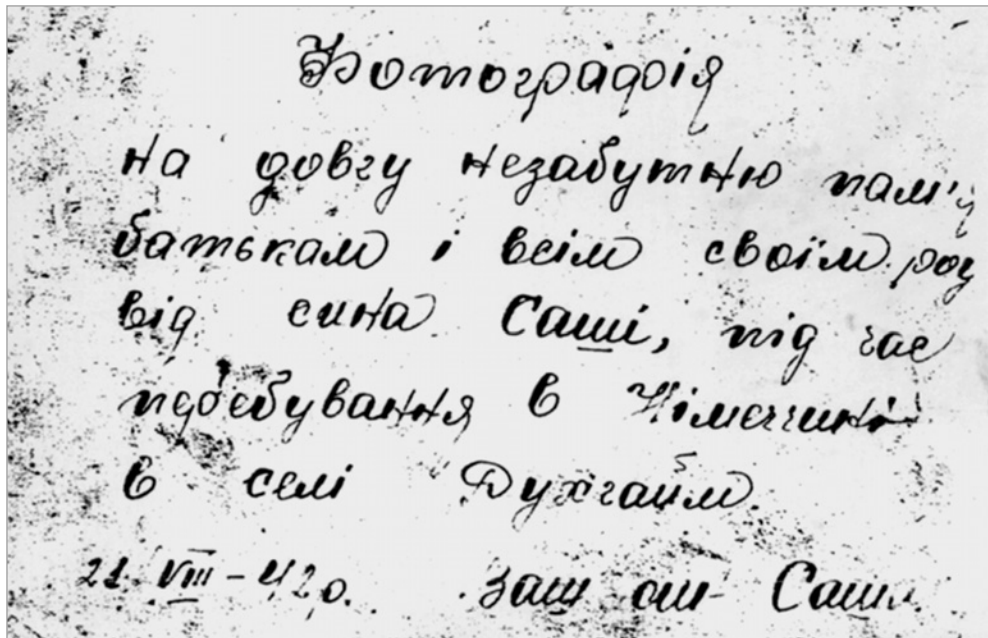 Фотографія
на довгу незабутню пам'я
батькам і всім своїм род
від сина Саші, під час
перебування в Німеччині
в селі Духгайм.
21 VIII - 42 р. Саш